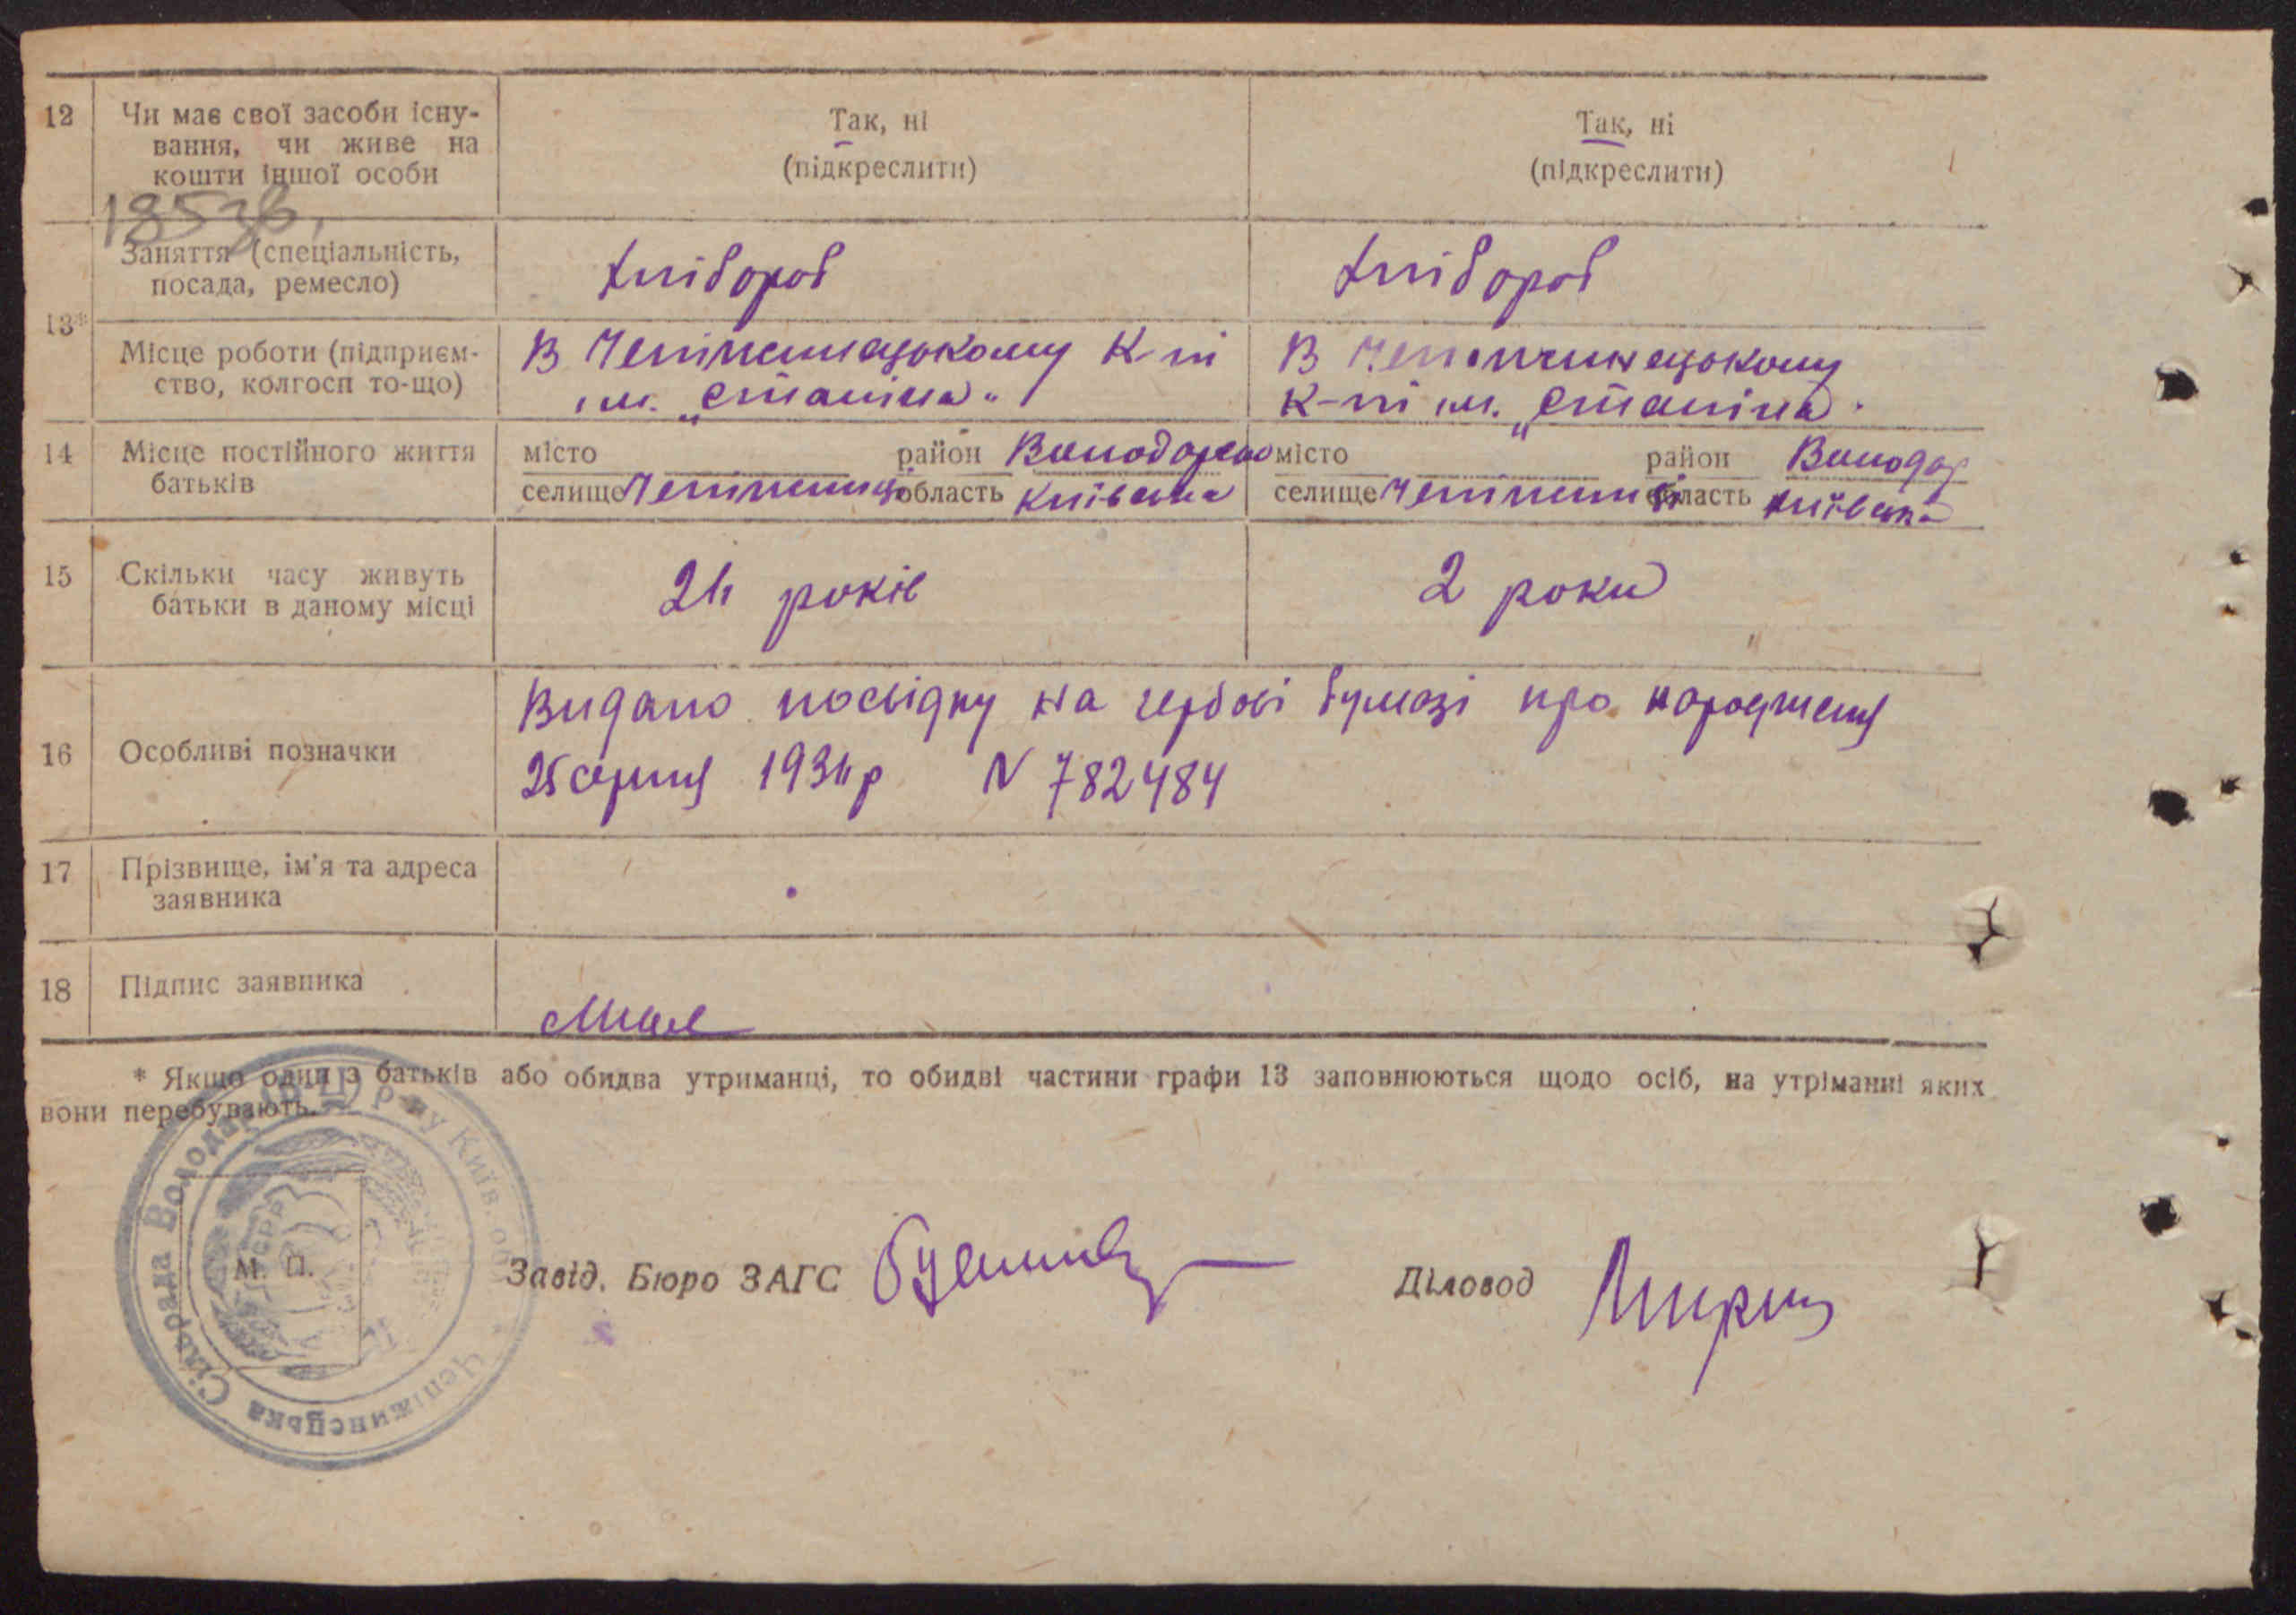 12 Чи має свої засоби існу-
вання, чи живе на
кошти іншої особи
Так, ні
(підкреслити)
Так, ні
(підкреслити)
185зв.
13*
Заняття (спеціальність,
посада, ремесло)
Хлібороб
Хлібороб
Місце роботи (підприєм-
ство, колгосп то-що)
В Чепіжинецькому К-пі
ім. „Сталіна"
В Чепіжинецькому
К-пі ім. „Сталіна.
14 Місце постійного життя
батьків
місто район Володарсь
селище Чепіжинці область Київська
місто район Володар
селище Чепіжинці область Київська
15 Скільки часу живуть
батьки в даному місці
24 років
2 роки
16 Особливі позначки
Видано посвідку на гербові бумазі про народження
25 серпня 1934р N 782484
17 Прізвище, ім'я та адреса
заявника
18 Підпис заявника
* Якщо один з батьків або обидва утриманці, то обидві частини графи 13 заповнюються щодо осіб, на утріманні яких
вони перебувають.
Чепіжинецька Сільрада Володар р-ну Київ. об
УСРР
М. П.
Завід. Бюро ЗАГС
Діловод